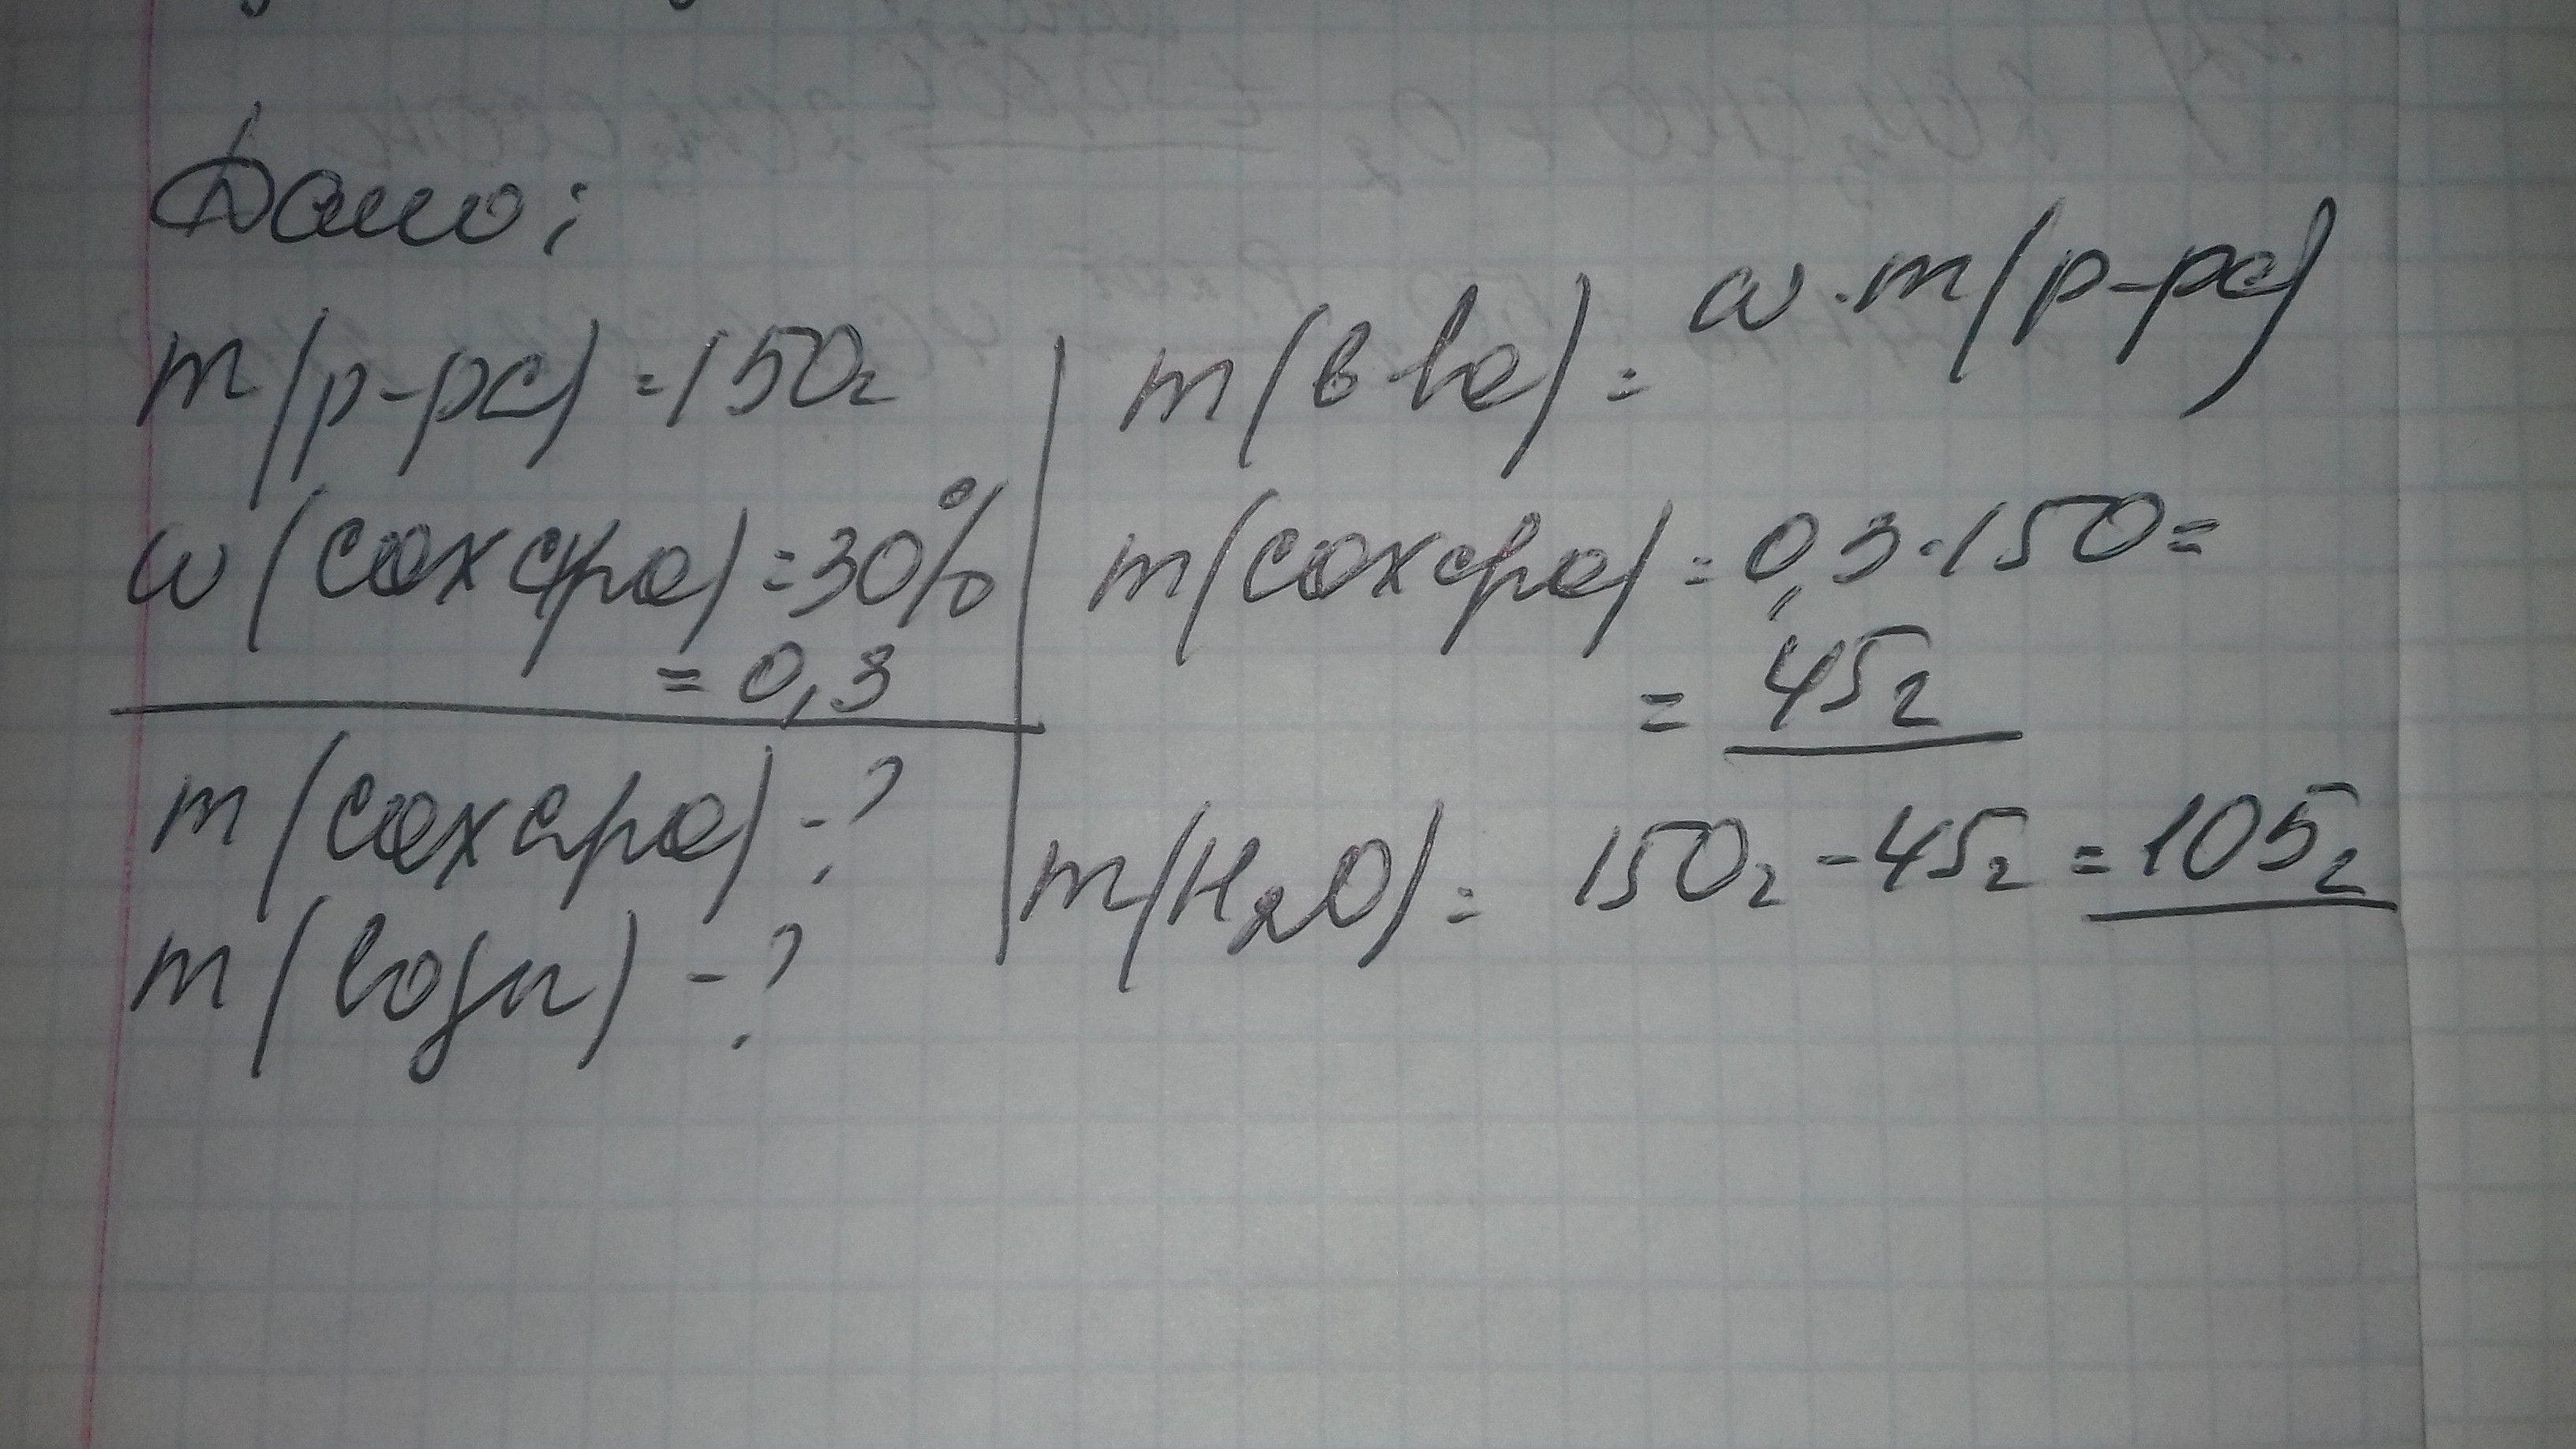 Дано:
m(р-ра) = 150г
w(сахара) = 30%
= 0,3
m(сахара) - ?
m(воды) - ?
m(в-ва) = w · m(р-ра)
m(сахара) = 0,3 · 150 =
= 45г
m(H2O) = 150г - 45г = 105г